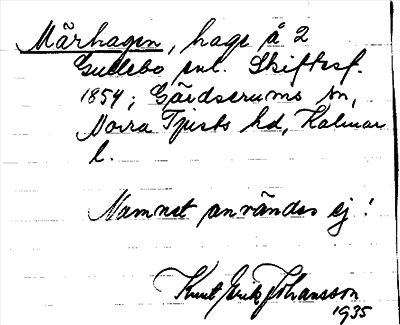 Märhagen, hage å 2
Gullebo enl. Skiftesf.
1854; Gärdserums sn,
Norra Tjusts hd, Kalmar
l.
Namnet användes ej!
Knut Erik Johansson
1935